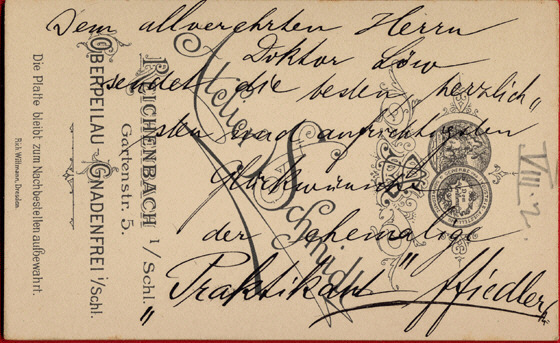 Dem allverehrten Herrn
Doktor Löw
sendet die besten, herzlich„
sten und aufrichtigsten
Glückwünsche
der Ehemalige
"Praktikant" Fiedler
Atelier Schmidt
REICHENBACH i/Schl.
Gartenstr. 5.
OBERPEILAU-GNADENFREI i/Schl.
Die Platte bleibt zum Nachbestellen aufbewahrt.
Rich. Wittmann, Dresden.
VIII. 2.